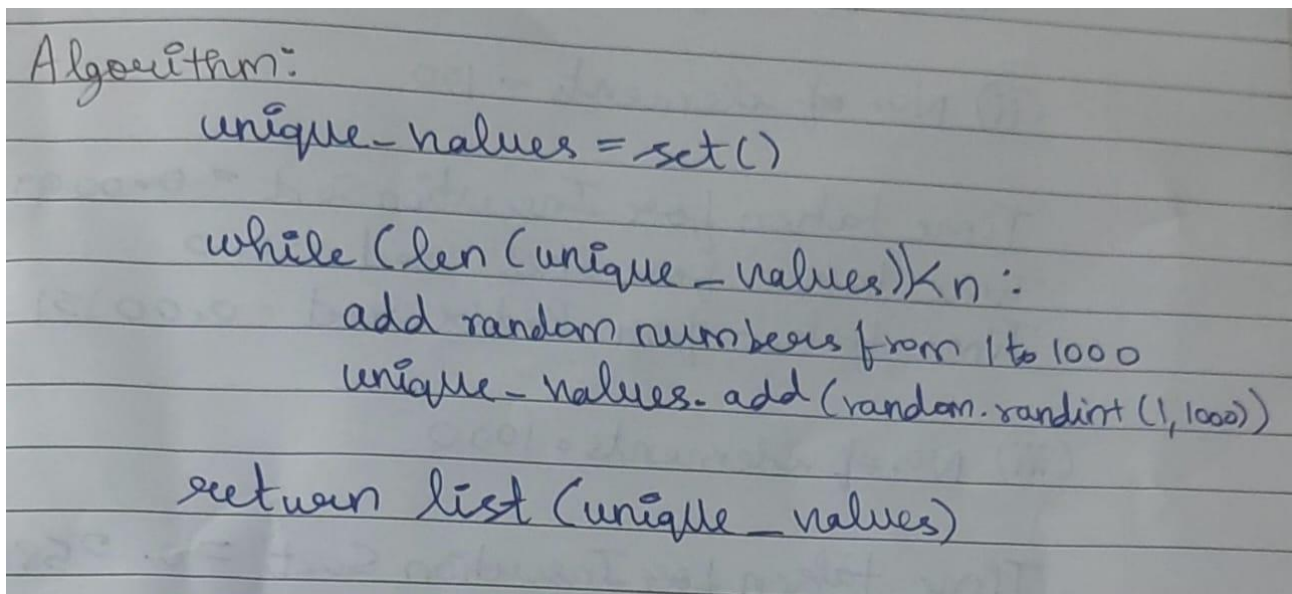 Algorithm:
unique_values = set()
while (len (unique_values))<n :
add random numbers from 1 to 1000
unique_values. add (random.randint (1,1000))
return list (unique_values)